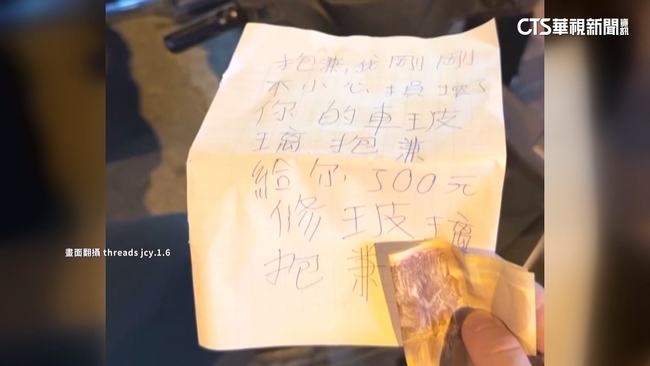 CTS華視新聞資訊
抱兼,我剛剛
不小心損壞了
你的車玻
璃 抱兼
給你500元
修玻璃
抱兼
畫面翻攝 threads jcy.1.6